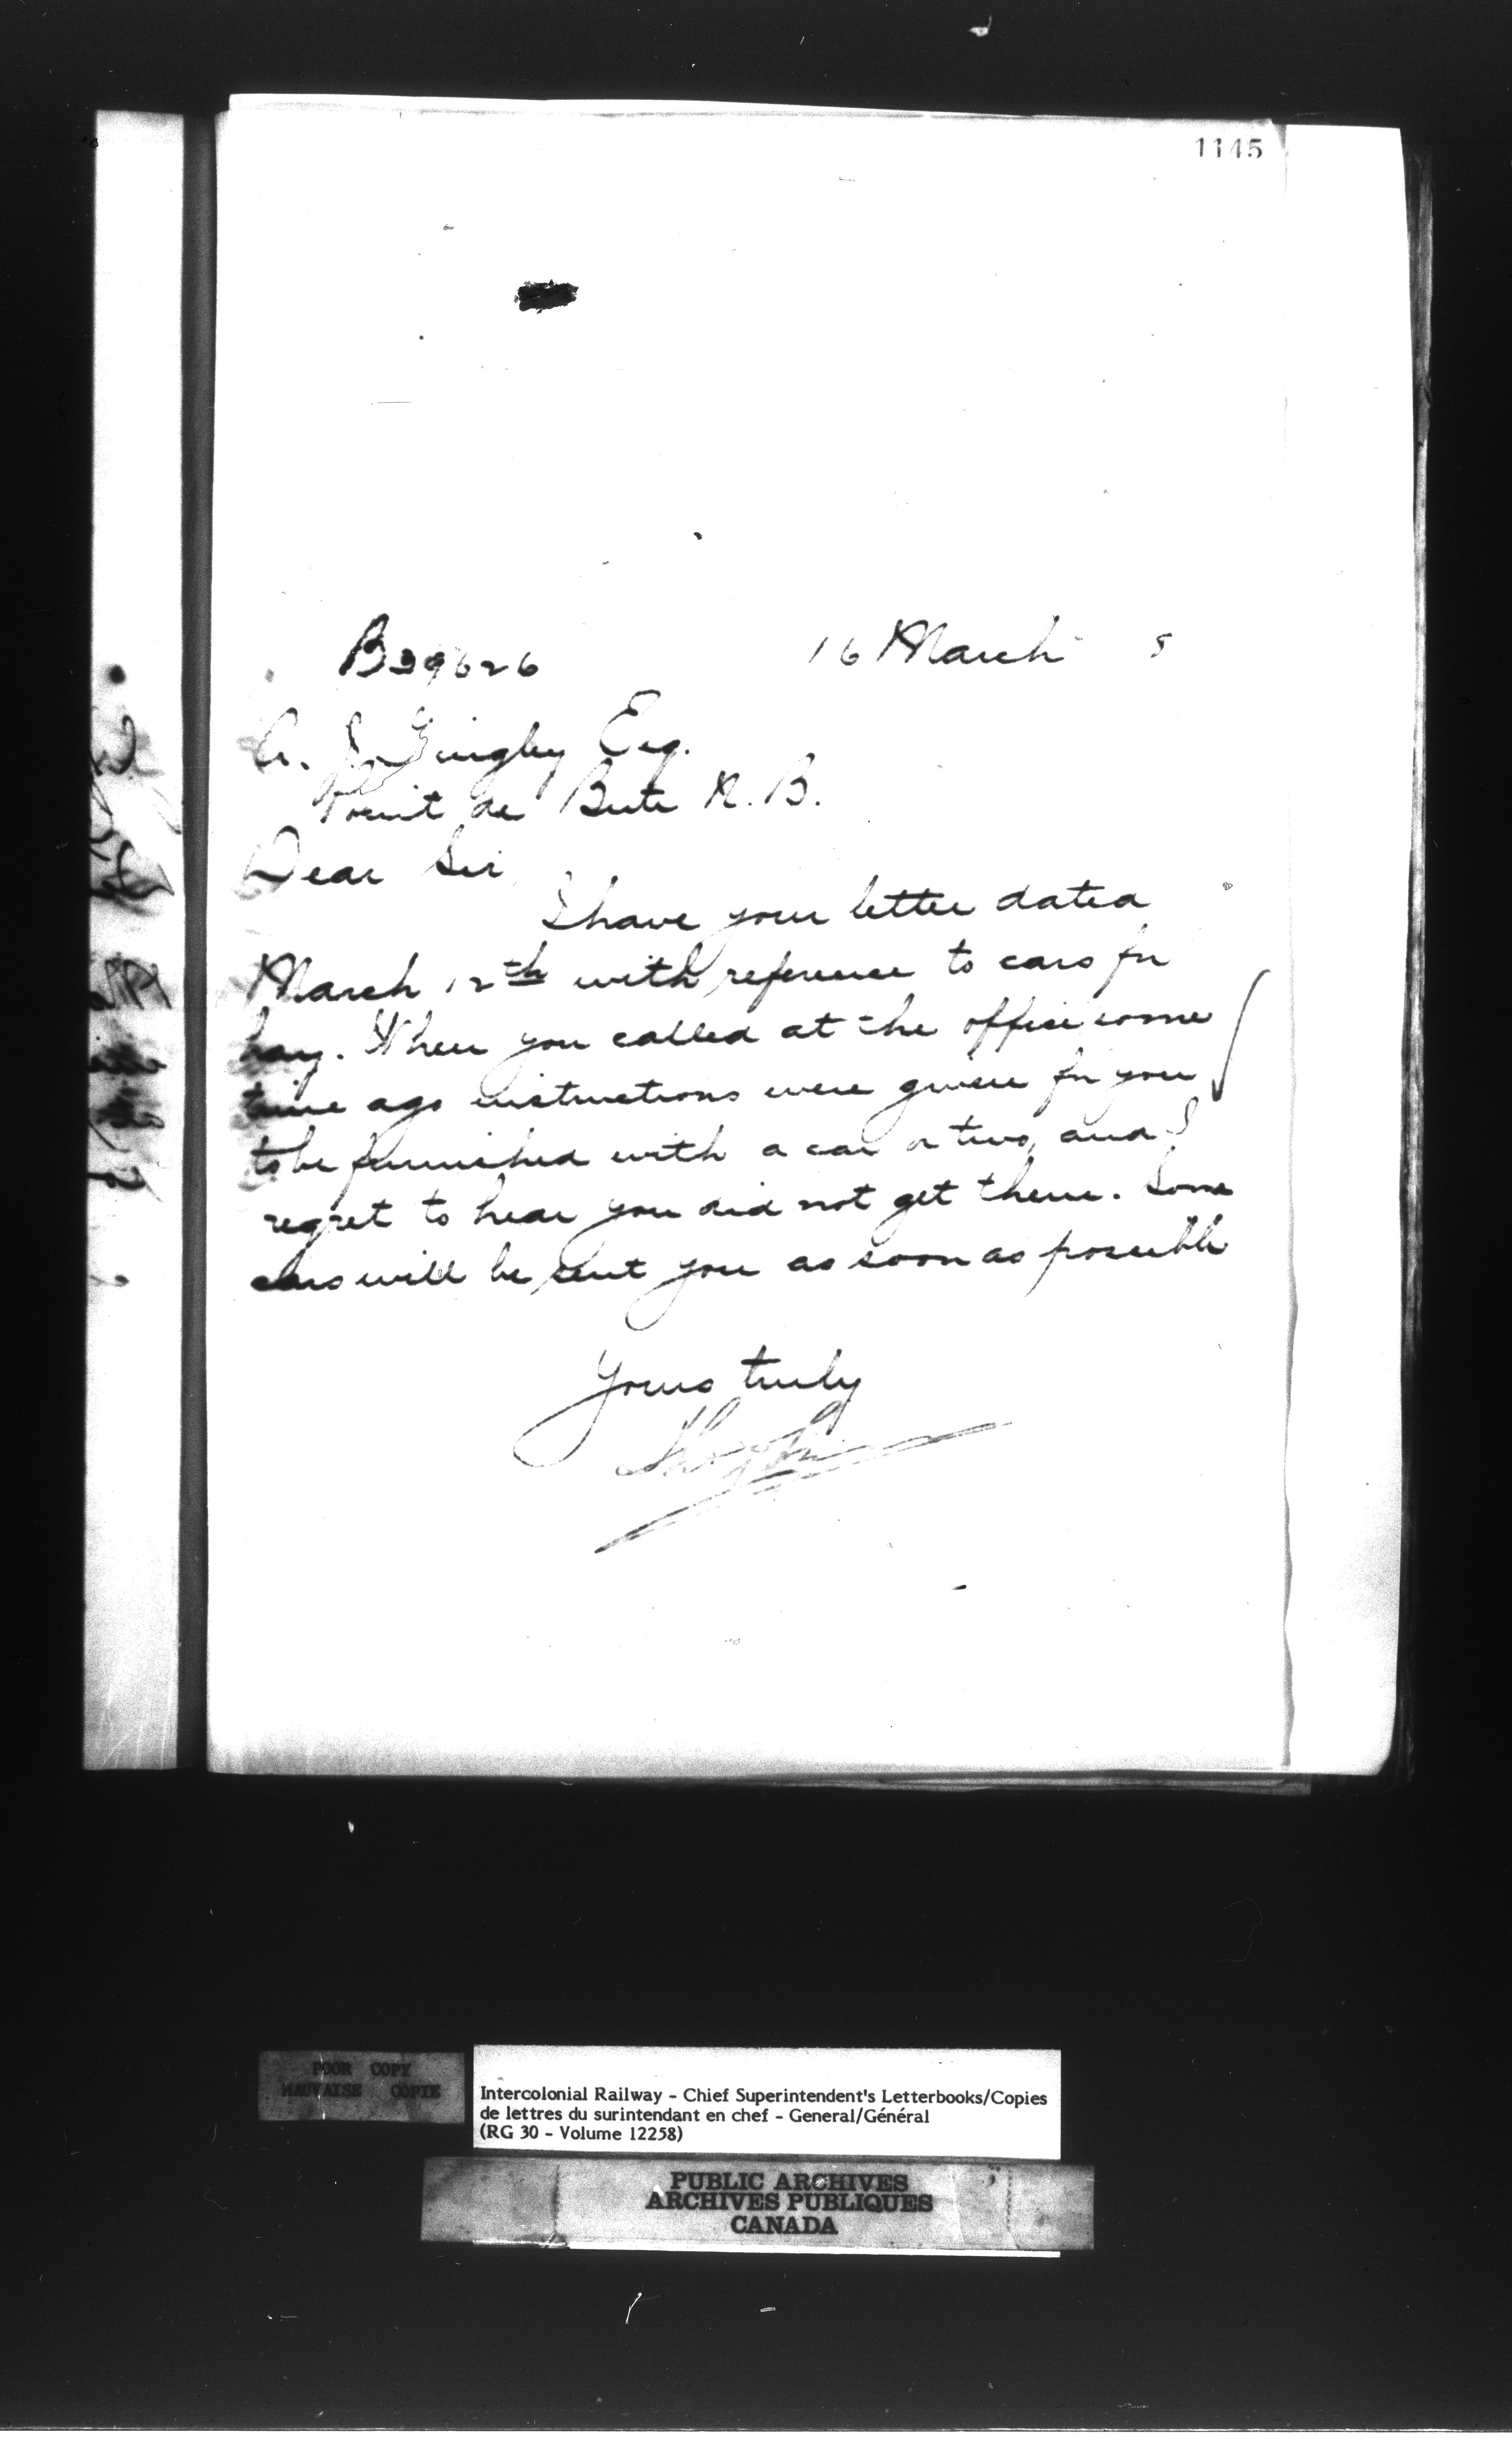 1145
B39626 16 March 8
A. J. Esq.
Point de Bute N.B.
Dear Sir
I have your letter dated
March 12th with reference to cars for
hay. When you called at the office some
time ago instructions were given for you
to be furnished with a car or two, and I
regret to hear you did not get them. Some
cars will be sent you as soon as possible
Yours truly
POOR COPY
MAUVAISE COPIE
Intercolonial Railway - Chief Superintendent's Letterbooks/Copies
de lettres du surintendant en chef - General/Général
(RG 30 - Volume 12258)
PUBLIC ARCHIVES
ARCHIVES PUBLIQUES
CANADA